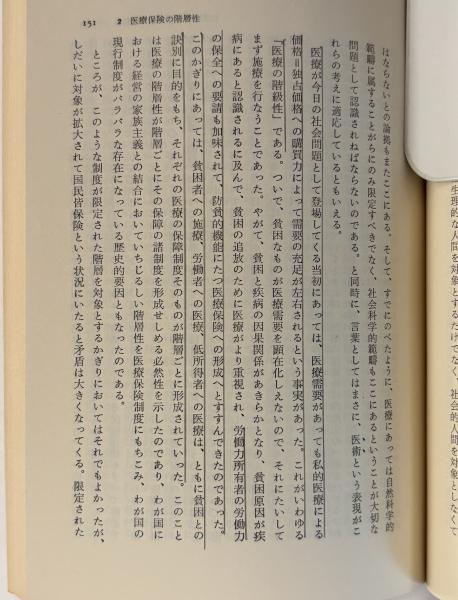 生理的な人間を対象とするだけでなく、社会的人間を対象としなくて
151　2　医療保険の階層性
はならないとの論拠もまたここにある。そして、すでにのべたように、医療にあっては自然科学的
範疇に属することがらにのみ限定すべきでなく、社会科学的範疇もここにあるということが大切な
問題として認識されねばならないのである。と同時に、言葉としてはまさに、医術という表現がこ
れらの考えに適応しているともいえる。
医療が今日の社会問題として登場してくる当初にあっては、医療需要があっても私的医療による
価格＝独占価格への購買力によって需要の充足が左右されるという事実があった。これがいわゆる
『医療の階級性』である。ついで、貧困なものが医療需要を顕在化しえないので、それにたいして
まず施療を行なうことであった。やがて、貧困と疾病の因果関係があきらかとなり、貧困原因が疾
病にあると認識されるに及んで、貧困の追放のために医療がより重視され、労働力所有者の労働力
の保全への要請も加味されて、防貧的機能にたつ医療保険への形成へとすすんできたのであった。
このかぎりにあっては、貧困者への施療、労働者への医療、低所得者への医療は、ともに貧困との
訣別に目的をもち、それぞれの医療の保障制度そのものが階層ごとに形成されていった。このこと
は医療の階層性が階層ごとにその保障の諸制度を形成せしめる必然性を示したのであり、わが国に
おける経営の家族主義との結合においていちじるしい階層性を医療保険制度にもちこみ、わが国の
現行制度がバラバラな存在になっている歴史的要因ともなったのである。
ところが、このような制度が限定された階層を対象とするかぎりにおいてはそれでもよかったが、
しだいに対象が拡大されて国民皆保険という状況にいたると矛盾は大きくなってくる。限定された